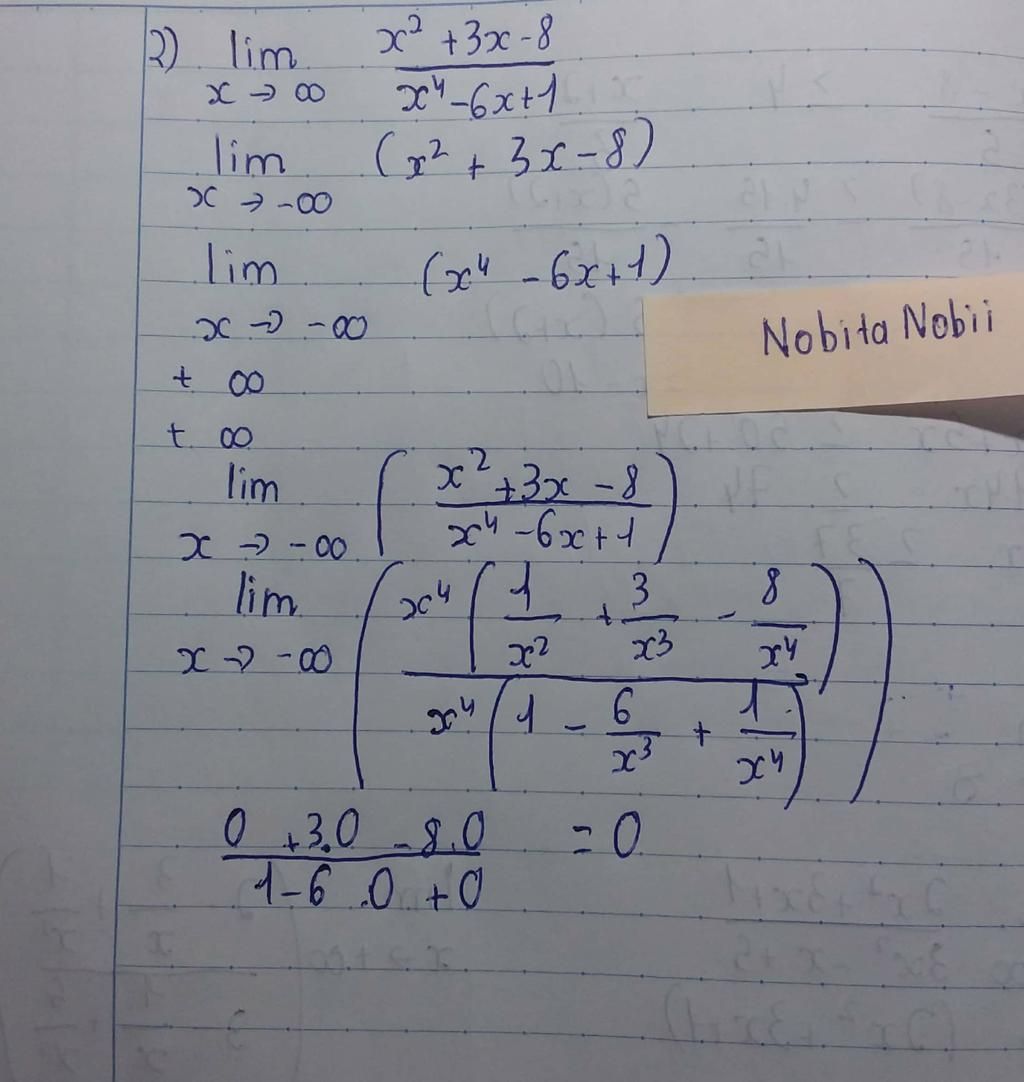 2) lim x²+3x-8
x→∞ x⁴-6x+1
lim (x² + 3x-8)
x→-∞
lim (x⁴ - 6x+1)
x→ -∞
Nobita Nobii
+ ∞
+ ∞
lim (x²+3x - 8
x → -∞ x⁴ -6x+1)
lim (x⁴ (1/x² + 3/x³ - 8/x⁴)
x→ -∞ x⁴ (1 - 6/x³ + 1/x⁴))
0 +3.0 -8.0 = 0
1-6 .0 +0